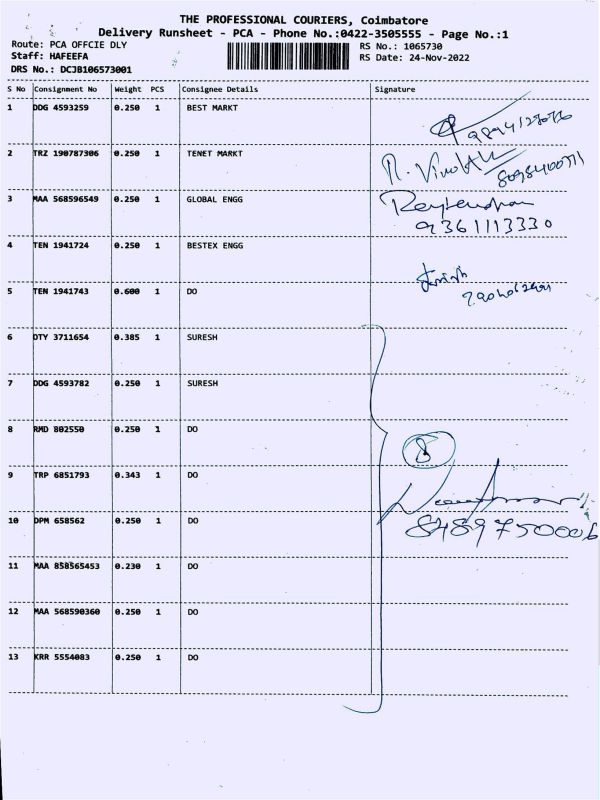 THE PROFESSIONAL COURIERS, Coimbatore
Delivery Runsheet - PCA - Phone No.:0422-3505555 - Page No.:1
Route: PCA OFFCIE DLY
Staff: HAFEEFA
DRS No.: DCJB106573001
RS No.: 1065730
RS Date: 24-Nov-2022
S No Consignment No Weight PCS Consignee Details Signature
1 DDG 4593259 0.250 1 BEST MARKT
2 TRZ 190787306 0.250 1 TENET MARKT
3 MAA 568596549 0.250 1 GLOBAL ENGG
9361113330
4 TEN 1941724 0.250 1 BESTEX ENGG
5 TEN 1941743 0.600 1 DO
6 DTY 3711654 0.385 1 SURESH
7 DDG 4593782 0.250 1 SURESH
8 RMD 802550 0.250 1 DO
8
9 TRP 6851793 0.343 1 DO
8489750006
10 DPM 658562 0.250 1 DO
11 MAA 858565453 0.230 1 DO
12 MAA 568590360 0.250 1 DO
13 KRR 5554083 0.250 1 DO